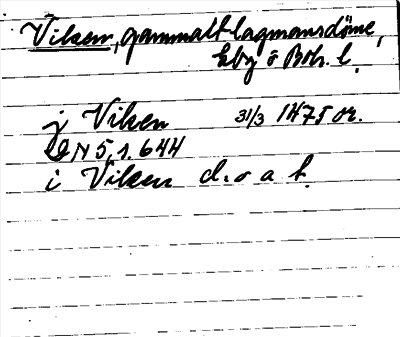 Viken, gammalt lagmansdöme,
Eby ö Boh. l.
j Viken 31/3 1475 or.
DN 5, s. 644
i Viken d. o a f.